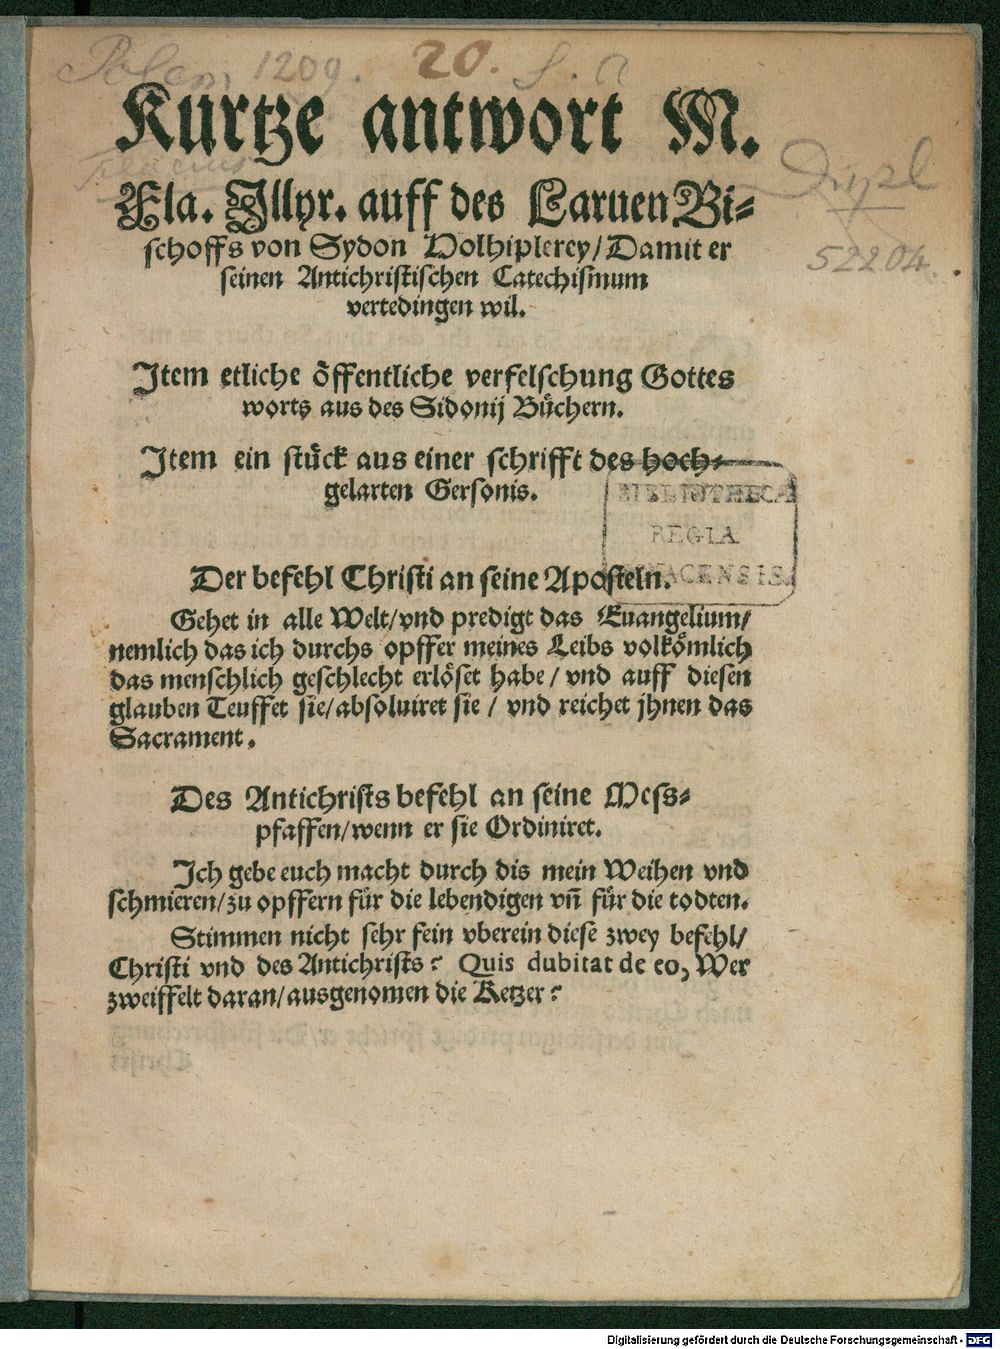 Polem. 1209. 20. s. a
Kurtze antwort M.
Flacius
Fla. Jllyr. auff des Laruen Bi⸗
Dupl
schoffs von Sydon Holhiplerey/Damit er
52204.
seinen Antichristischen Catechismum
vertedingen wil.
Jtem etliche öffentliche verfelschung Gottes
worts aus des Sidonij Büchern.
Jtem ein stück aus einer schrifft des hoch⸗
gelarten Gersonis.
BIBLIOTHECA
REGIA
MONACENSIS.
Der befehl Christi an seine Aposteln.
Gehet in alle Welt/vnd predigt das Euangelium/
nemlich das ich durchs opffer meines Leibs volkömlich
das menschlich geschlecht erlöset habe/ vnd auff diesen
glauben Teuffet sie/absoluiret sie / vnd reichet jhnen das
Sacrament.
Des Antichrists befehl an seine Mess⸗
pfaffen/wenn er sie Ordiniret.
Jch gebe euch macht durch dis mein Weihen vnd
schmieren/zu opffern für die lebendigen vn̄ für die todten.
Stimmen nicht sehr fein vberein diese zwey befehl/
Christi vnd des Antichrists? Quis dubitat de eo, Wer
zweiffelt daran/ausgenomen die Ketzer?
Digitalisierung gefördert durch die Deutsche Forschungsgemeinschaft - DFG